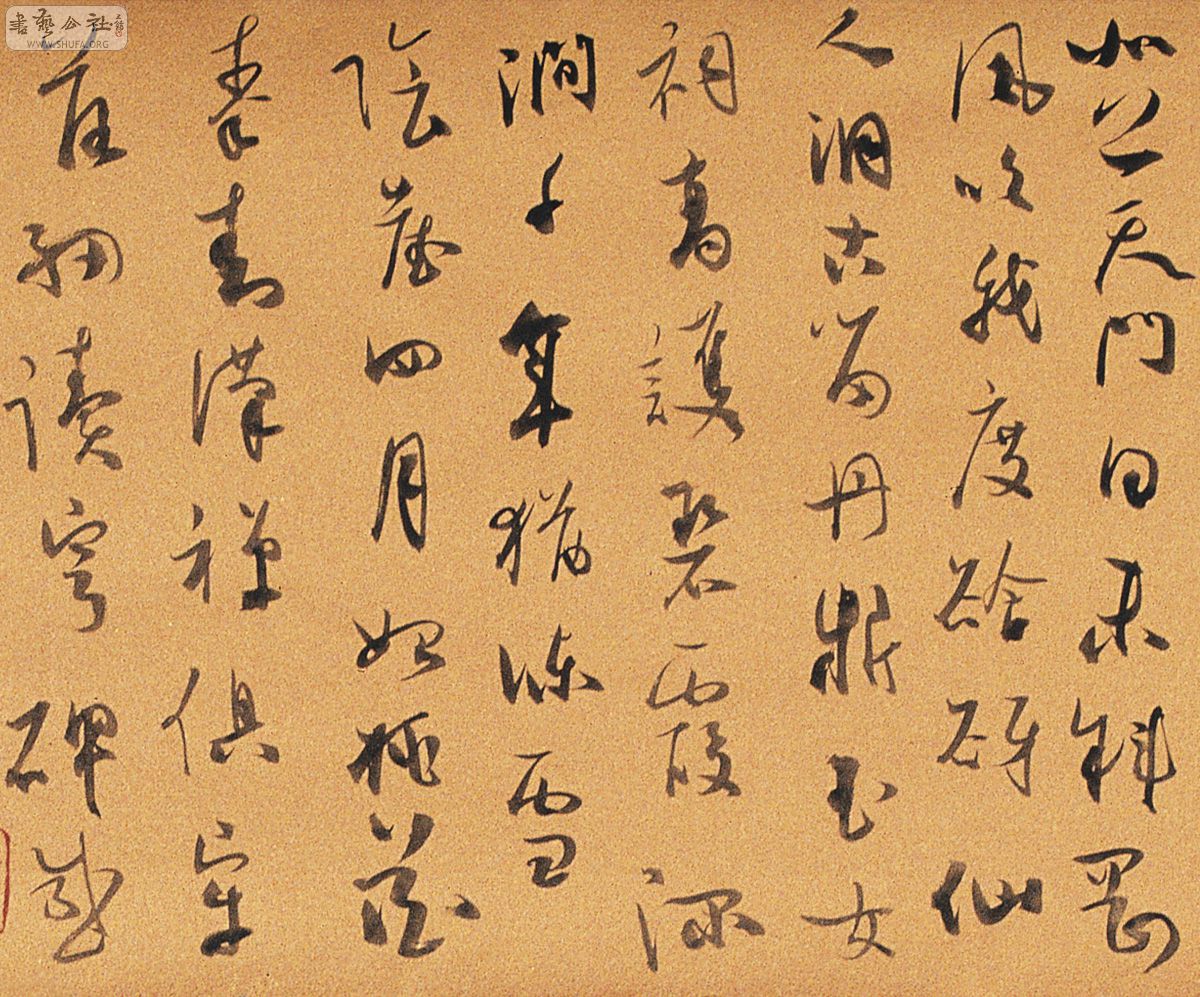 北上天門日未斜罡
風吹我度谽谺仙
人洞古留丹鼎玉女
祠高護碧霞深
澗千年猶凍雪
陰崖四月始桃花
秦封漢禪俱牢
細讀穹碑感
書藝公社
WWW.SHUFA.ORG